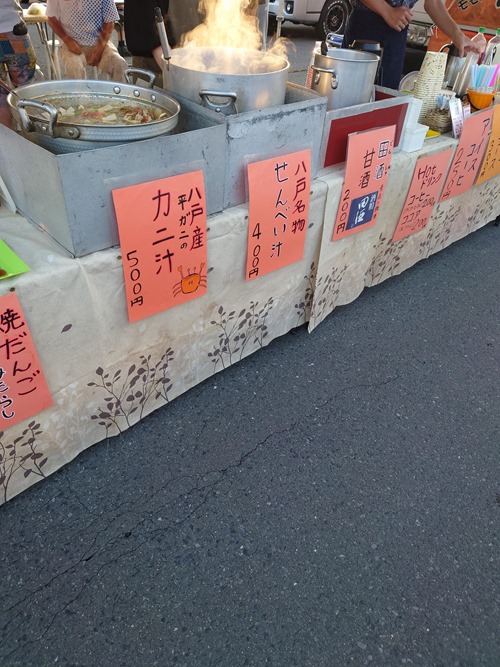 焼だんご
みたらし
八戸産
平ガニの
カニ汁
500円
八戸名物
せんべい汁
400円
田酒
甘酒
200円
Hotドリンク
コーヒー
ココア
アイス